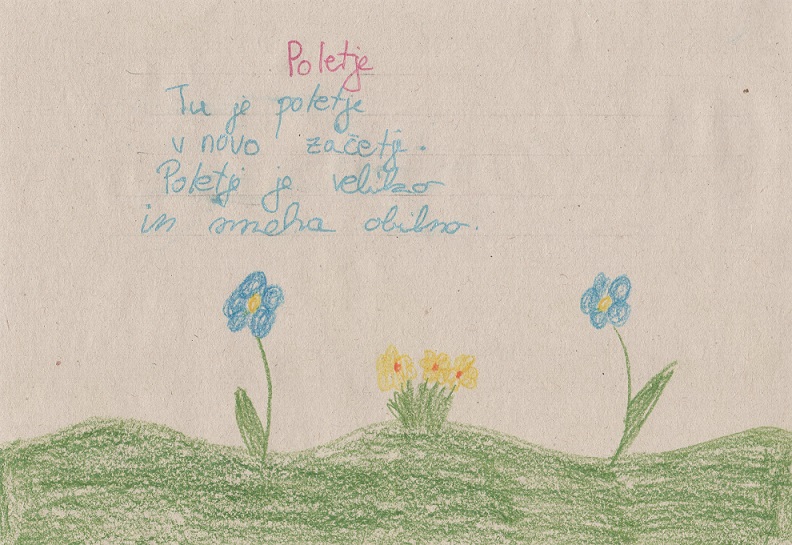 Poletje
Tu je poletje
v novo začetje.
Poletje je veliko
in smeha obilno.